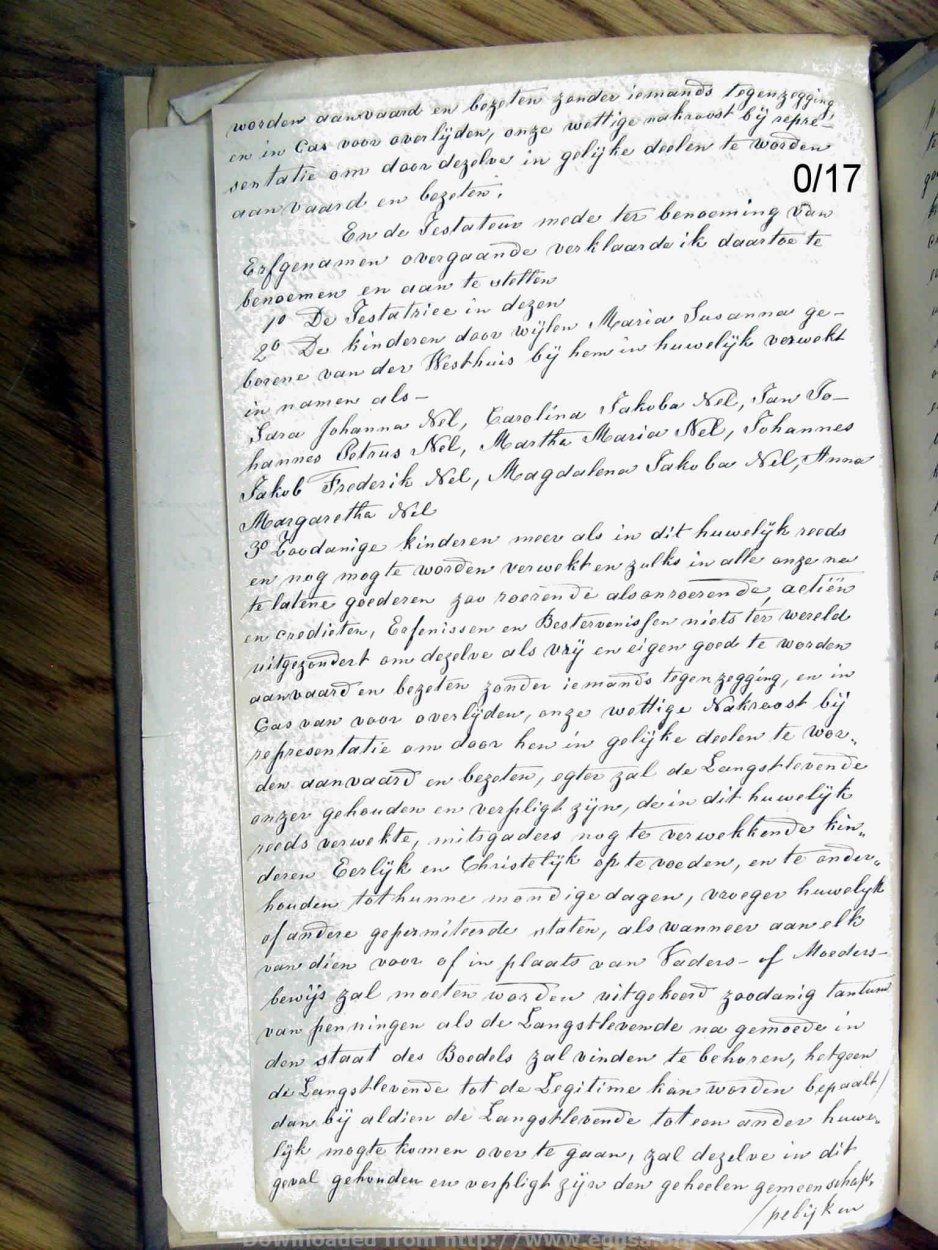 worden aanvaard en bezeten zonder iemands tegenzegging,
en in Cas voor overlijden, onze wettige nakroost bij repre-
sentatie om door dezelve in gelijke deelen te worden
aanvaard en bezeten.
0/17
En de Testateur mede ter benoeming van
Erfgenamen overgaande verklaarde ik daartoe te
benoemen en aan te stellen
1o De Testatrice in dezen
2o De kinderen door wijlen Maria Susanna ge-
borene van der Westhuis bij hem in huwelijk verwekt
in namen als –
Sara Johanna Nel, Carolina Jakoba Nel, Jan Jo-
hannes Petrus Nel, Martha Maria Nel, Johannes
Jakob Frederik Nel, Magdalena Jakoba Nel, Anna
Margaretha Nel
3o Zoodanige kinderen meer als in dit huwelijk reeds
en nog mogte worden verwekt en zulks in alle onze na
te latene goederen zoo roerende als onroerende, actiën
en credieten, Erfenissen en Bestervenissen niets ter wereld
uitgezondert om dezelve als vrij en eigen goed te worden
aanvaard en bezeten zonder iemands tegenzegging, en in
Cas van voor overlijden, onze wettige Nakroost bij
representatie om door hen in gelijke deelen te wor„
den aanvaard en bezeten, egter zal de Langstlevende
onzer gehouden en verpligt zijn, de in dit huwelijk
reeds verwekte, mitsgaders nog te verwekkende kin„
deren Eerlijk en Christelijk op te voeden, en te onder„
houden tot hunne mondige dagen, vroeger huwelijk
of andere gepermiteerde staten, als wanneer aan elk
van dien voor of in plaats van Vaders- of Moeders-
bewijs zal moeten worden uitgekeerd zoodanig tantum
van penningen als de Langstlevende na gemoede in
den staat des Boedels zal vinden te behoren, hetgeen
de Langstlevende tot de Legitime kan worden bepaalt/
dan bij aldien de Langstlevende tot een ander huwe„
lijk mogte komen over te gaan, zal dezelve in dit
geval gehouden en verpligt zijn den geheelen gemeenschap„
/pelijken
Downloaded from http://www.eggsa.org